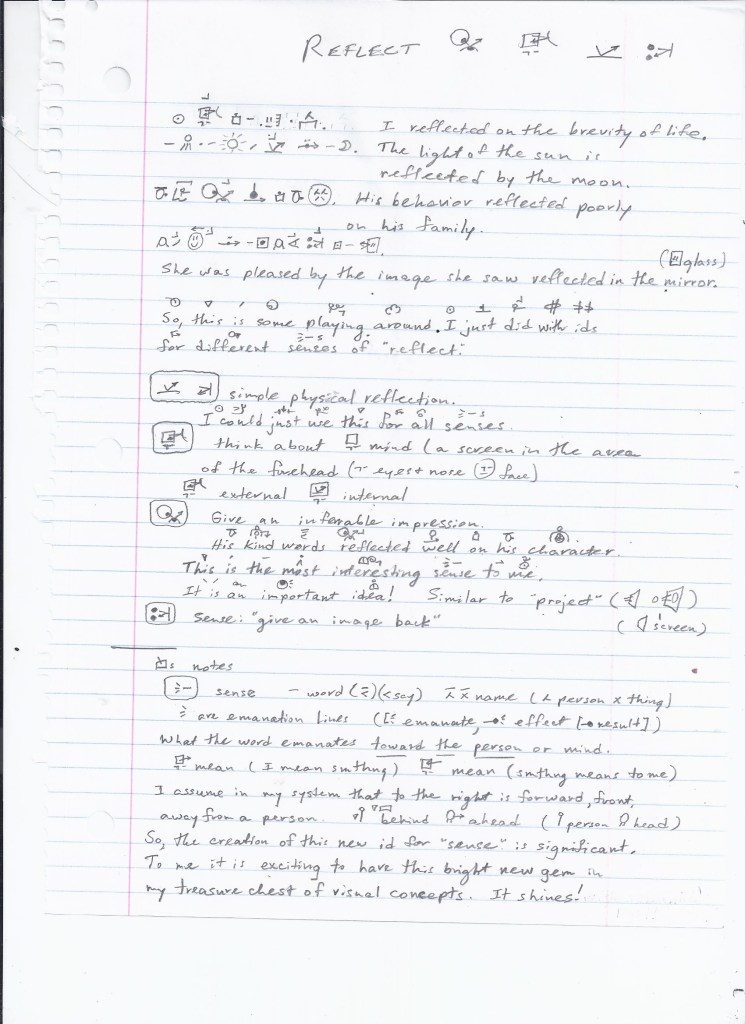 REFLECT
I reflected on the brevity of life.
The light of the sun is
reflected by the moon.
His behavior reflected poorly
on his family.
(glass)
She was pleased by the image she saw reflected in the mirror.
So, this is some playing around. I just did with ids
for different senses of "reflect".
simple physical reflection.
I could just use this for all senses.
think about mind (a screen in the area
of the forehead (eyes + nose face)
external internal
Give an inferable impression.
His kind words reflected well on his character.
This is the most interesting sense to me.
It is an important idea! Similar to "project" (
Sense: "give an image back" ( screen)
notes
sense – word ( ) (< say) name ( person x thing)
are emanation lines ( emanate, effect [ result])
What the word emanates toward the person or mind.
mean (I mean smthng) mean (smthng means to me)
I assume in my system that to the right is forward, front,
away from a person. behind ahead ( person head)
So, the creation of this new id for "sense" is significant.
To me it is exciting to have this bright new gem in
my treasure chest of visual concepts. It shines!